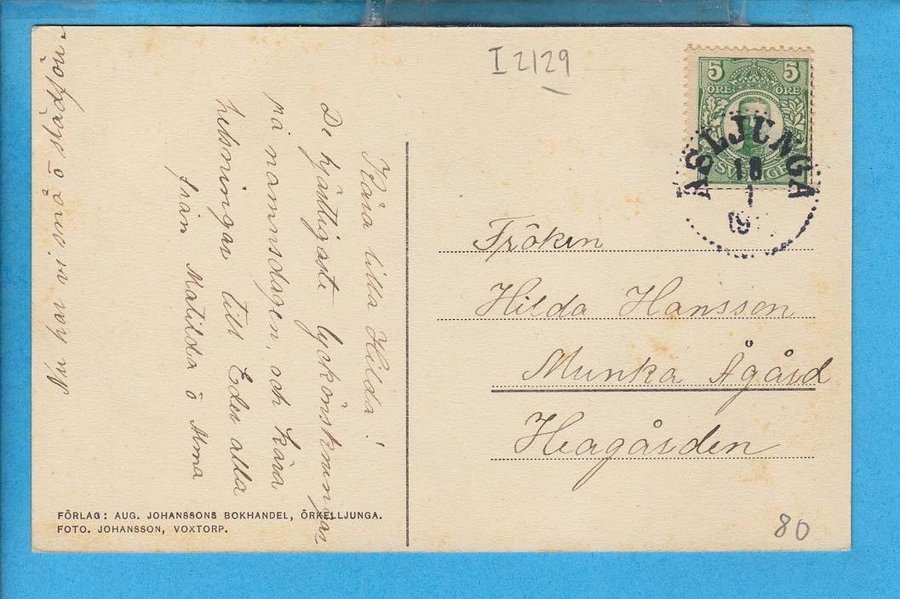 I 2129
5 5
ÖRE ÖRE
SVERIGE
ASLJUNGA
18
1
19
Kära lilla Hilda!
De hjärtligaste lyckönskningar
på namnsdagen, och kära
helsningar till Eder alla
från Matilda ö Alma
Nu har vi små ö
Fröken
Hilda Hansson
Munka Ågård
Heagården
FÖRLAG: AUG. JOHANSSONS BOKHANDEL, ÖRKELLJUNGA.
FOTO. JOHANSSON, VOXTORP.
80